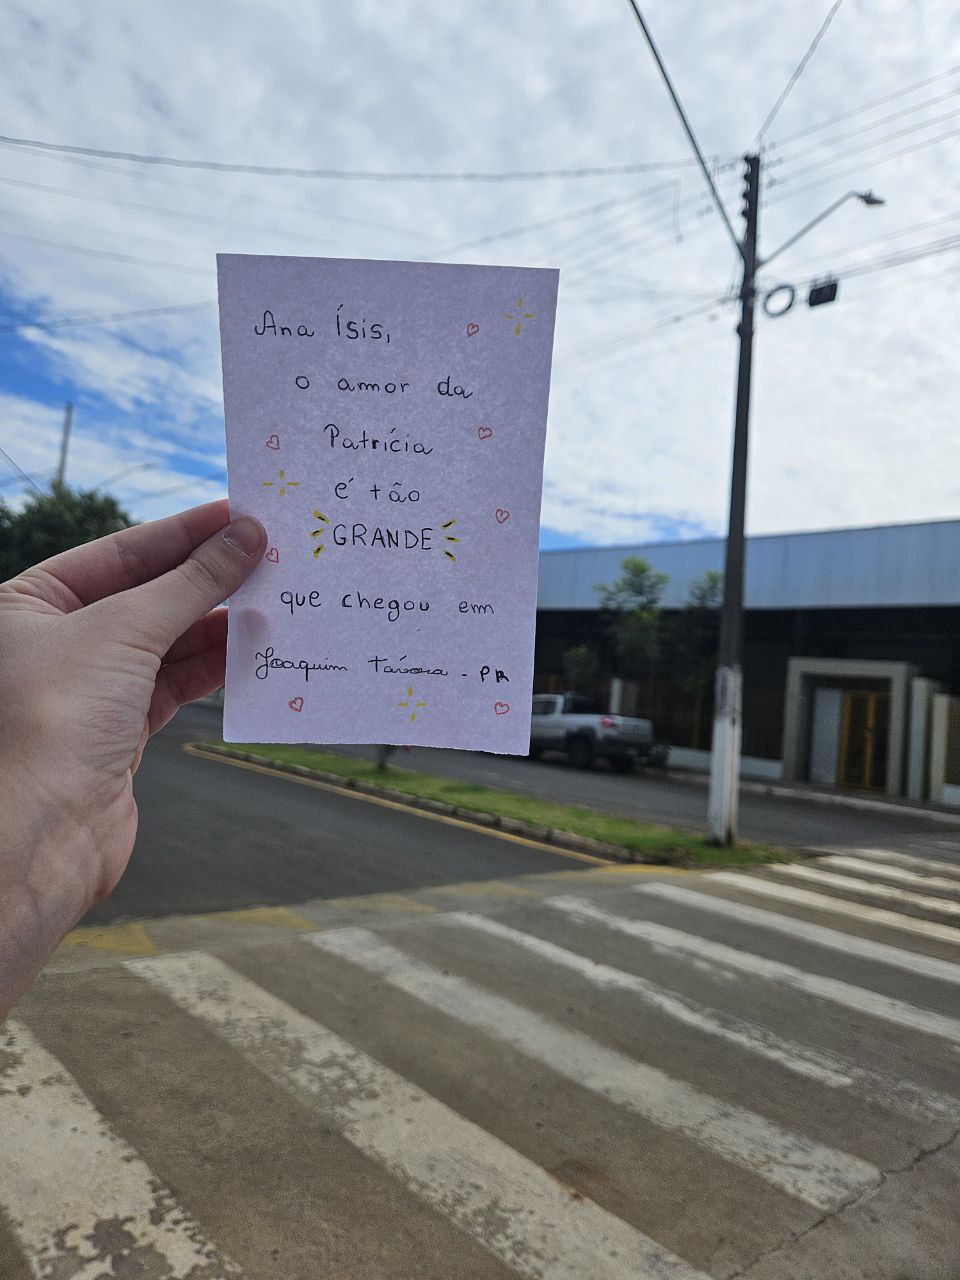 Ana Ísis,
o amor da
Patrícia
é tão
GRANDE
que chegou em
Joaquim Távora - PR